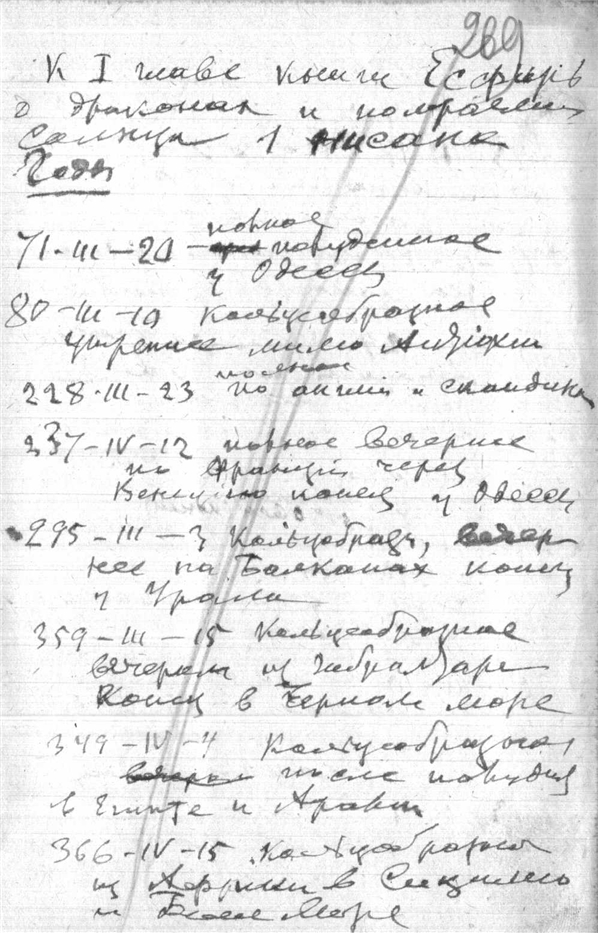 269
К I главе книги Есфирь
о драконах и помрачении
Солнца 1 нисана
Годы
полное
71-III-20 полуденное
у Одессы
80-III-10 Кольцеобразное
утреннее мимо
полное
228-III-23 по англии и скандин
237-IV-12 полное вечернее
по Франции через
Венецию конец у Одессы
295-III-3 Кольцеобразн, вечер
нее на Балканах конец
у Урала
359-III-15 Кольцеобразное
вечернее из Гибралтара
Конец в Черном море
349-IV-4 Кольцеобразное
после полудня
в Египте и Аравии
366-IV-15 Кольцеобразное
из Африки в Сицилию
и Белое Море